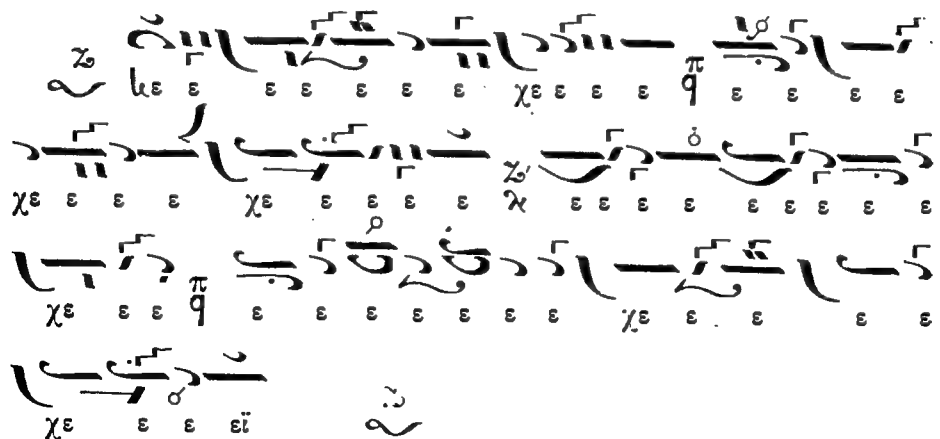 κε ε ε ε ε ε ε χε ε ε ε π q ε ε ε ε
χε ε ε ε χε ε ε ε ε ζ' ε ε ε ε ε ε ε ε ε
χε ε ε π q ε ε ε ε ε ε ε χε ε ε ε ε
χε ε ε εϊ